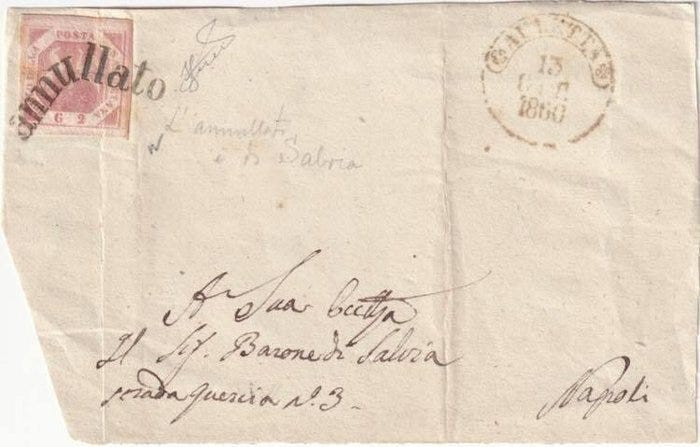 POSTA
annullato
G 2
13
1860
L'annullato
è di Salvia
A Sua Ecc.za
Il Sig. Barone di Salvia
strada quercia n.° 3.
Napoli